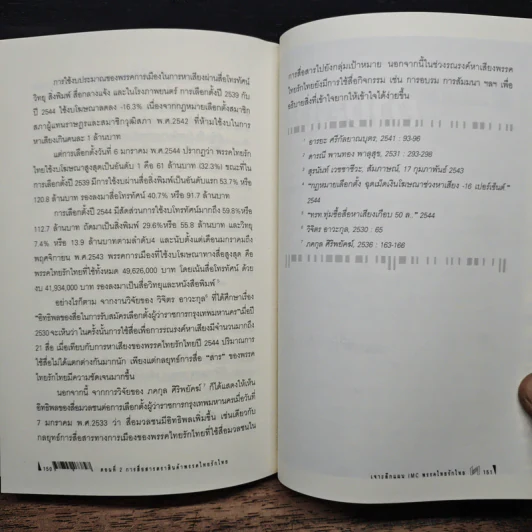 การใช้งบประมาณของพรรคการเมืองในการหาเสียงผ่านสื่อโทรทัศน์
วิทยุ สิ่งพิมพ์ สื่อกลางแจ้ง และในโรงภาพยนตร์ การเลือกตั้งปี 2539 กับ
ปี 2544 ใช้งบโฆษณาลดลง -16.3% เนื่องจากกฎหมายเลือกตั้งสมาชิก
สภาผู้แทนราษฎรและสมาชิกวุฒิสภา พ.ศ.2542 ที่ห้ามใช้งบในการ
หาเสียงเกินคนละ 1 ล้านบาท
แต่การเลือกตั้งวันที่ 6 มกราคม พ.ศ.2544 ปรากฏว่า พรรคไทยรัก
ไทยใช้งบโฆษณาสูงสุดเป็นอันดับ 1 คือ 61 ล้านบาท (32.3%) ขณะที่ใน
การเลือกตั้งปี 2539 มีการใช้งบผ่านสื่อสิ่งพิมพ์เป็นอันดับแรก 53.7% หรือ
120.8 ล้านบาท รองลงมาสื่อโทรทัศน์ 40.7% หรือ 91.7 ล้านบาท
การเลือกตั้งปี 2544 มีสัดส่วนการใช้งบโทรทัศน์มากถึง 59.8% หรือ
112.7 ล้านบาท ถัดมาเป็นสิ่งพิมพ์ 29.6% หรือ 55.8 ล้านบาท และวิทยุ
7.4% หรือ 13.9 ล้านบาทตามลำดับ4 และนับตั้งแต่เดือนมกราคมถึง
พฤศจิกายน พ.ศ.2543 พรรคการเมืองที่ใช้งบโฆษณาทางสื่อสูงสุด คือ
พรรคไทยรักไทยที่ใช้ทั้งหมด 49,626,000 บาท โดยเน้นสื่อโทรทัศน์ ด้วย
งบ 41,934,000 บาท รองลงมาเป็นสื่อวิทยุและหนังสือพิมพ์ 5
อย่างไรก็ตาม จากงานวิจัยของ วิจิตร อาวะกุล6 ที่ได้ศึกษาเรื่อง
"อิทธิพลของสื่อในการรับสมัครเลือกตั้งผู้ว่าราชการกรุงเทพมหานคร" เมื่อปี
2530 จะเห็นว่า ในครั้งนั้นการใช้สื่อเพื่อการรณรงค์หาเสียงมีจำนวนมากถึง
21 สื่อ เมื่อเทียบกับการหาเสียงของพรรคไทยรักไทยปี 2544 ปริมาณการ
ใช้สื่อไม่ได้แตกต่างกันมากนัก เพียงแต่กลยุทธ์การสื่อ "สาร" ของพรรค
ไทยรักไทยมีความชัดเจนมากขึ้น
นอกจากนี้ จากการวิจัยของ ภคกุล ศิริพยัคฆ์ 7 ก็ได้แสดงให้เห็น
อิทธิพลของสื่อมวลชนต่อการเลือกตั้งผู้ว่าราชการกรุงเทพมหานครเมื่อวันที่
7 มกราคม พ.ศ.2533 ว่า สื่อมวลชนมีอิทธิพลเพิ่มขึ้น เช่นเดียวกับ
กลยุทธ์การสื่อสารทางการเมืองของพรรคไทยรักไทยที่ใช้สื่อมวลชนใน
150 ตอนที่ 2 การสื่อสารตราสินค้าพรรคไทยรักไทย
การสื่อสารไปยังกลุ่มเป้าหมาย นอกจากนี้ในช่วงรณรงค์หาเสียงพรรค
ไทยรักไทยยังมีการใช้สื่อกิจกรรม เช่น การอบรม การสัมมนา ฯลฯ เพื่อ
อธิบายสิ่งที่เข้าใจยากให้เข้าใจได้ง่ายขึ้น
1 อารยะ ศรีกัลยาณบุตร, 2541 : 93-96
2 ดารณี พานทอง พาลุสุข, 2531 : 293-298
3 สุรนันท์ เวชชาชีวะ, สัมภาษณ์, 17 กุมภาพันธ์ 2543
4 "กฎหมายเลือกตั้ง ฉุดเม็ดเงินโฆษณาช่วงหาเสียง -16 เปอร์เซ็นต์."
2544
5 "ทรท.ทุ่มซื้อสื่อหาเสียงเกือบ 50 ล." 2544
6 วิจิตร อาวะกุล, 2530 : 65
7 ภคกุล ศิริพยัคฆ์, 2536 : 163-166
เจาะลึกแผน IMC พรรคไทยรักไทย 151